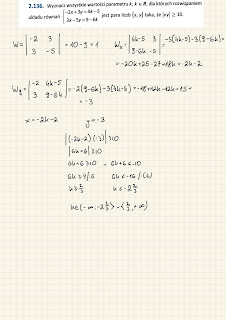 2.136. Wyznacz wszystkie wartości parametru k, k ∈ R, dla których rozwiązaniem
układu równań { -2x + 3y = 4k - 5
3x - 5y = 9 - 6k jest para liczb (x, y) taka, że |xy| ≥ 10.
W = | -2 3 | = 10 - 9 = 1
| 3 -5 |
Wx = | 4k-5 3 | = -5(4k-5) - 3(9-6k) =
| 9-6k -5 |
= -20k + 25 - 27 + 18k = -2k - 2
Wy = | -2 4k-5 | = -2(9-6k) - 3(4k-5) = -18 + 12k - 12k + 15 =
| 3 9-6k |
= -3
x = -2k - 2 y = -3
|(-2k-2)·(-3)| ≥ 10
|6k+6| ≥ 10
6k+6 ≥ 10 6k+6 ≤ -10
6k ≥ 4 /:6 6k ≤ -16 /:6
k ≥ 2/3 k ≤ -2 2/3
k ∈ (-∞; -2 2/3> ∪ <2/3, +∞)